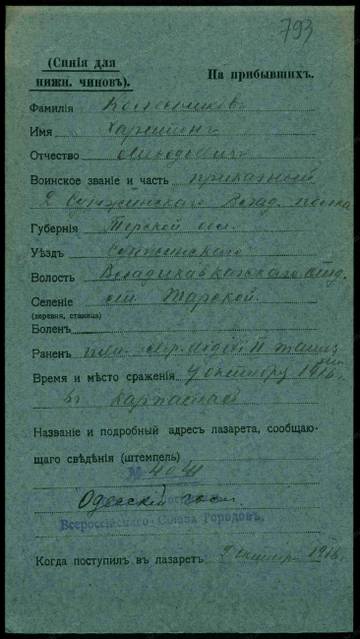 793
(Синія для
нижн. чиновъ).
На прибывшихъ.
Фамилія Колесниковъ
Имя
Отчество
Воинское званіе и часть приказный
2 Сунженскаго Влад. полка
Губернія Терской обл.
Уѣздъ Сунженскаго
Волость Владикавказскаго
Селеніе ст. Тарской.
(деревня, станица)
Боленъ
Раненъ
Время и мѣсто сраженія октября 1916
въ Карпатахъ
Названіе и подробный адресъ лазарета, сообщаю-
щаго свѣдѣнія (штемпель)
№ 4041
Одесскій госп.
Всероссійскаго Союза Городовъ.
Когда поступилъ въ лазаретъ 1916